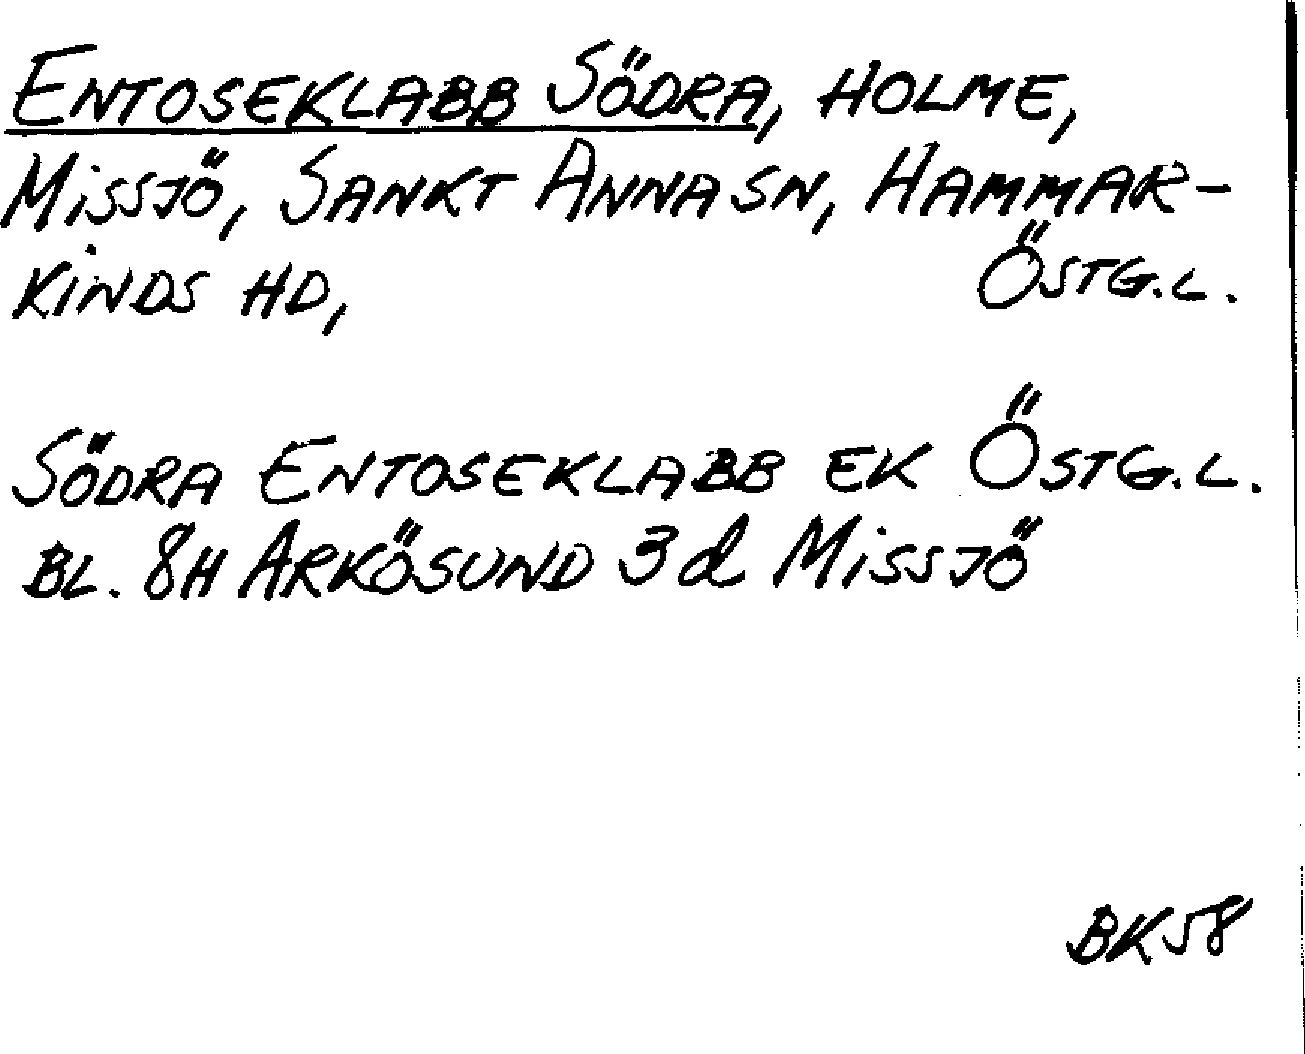 ENTOSEKLABB SÖDRA, HOLME,
MISSJÖ, SANKT ANNA SN, HAMMAR-
KINDS HD, ÖSTG.L.
SÖDRA ENTOSEKLABB EK ÖSTG.L.
BL. 8H ARKÖSUND 3d MISSJÖ
BK58